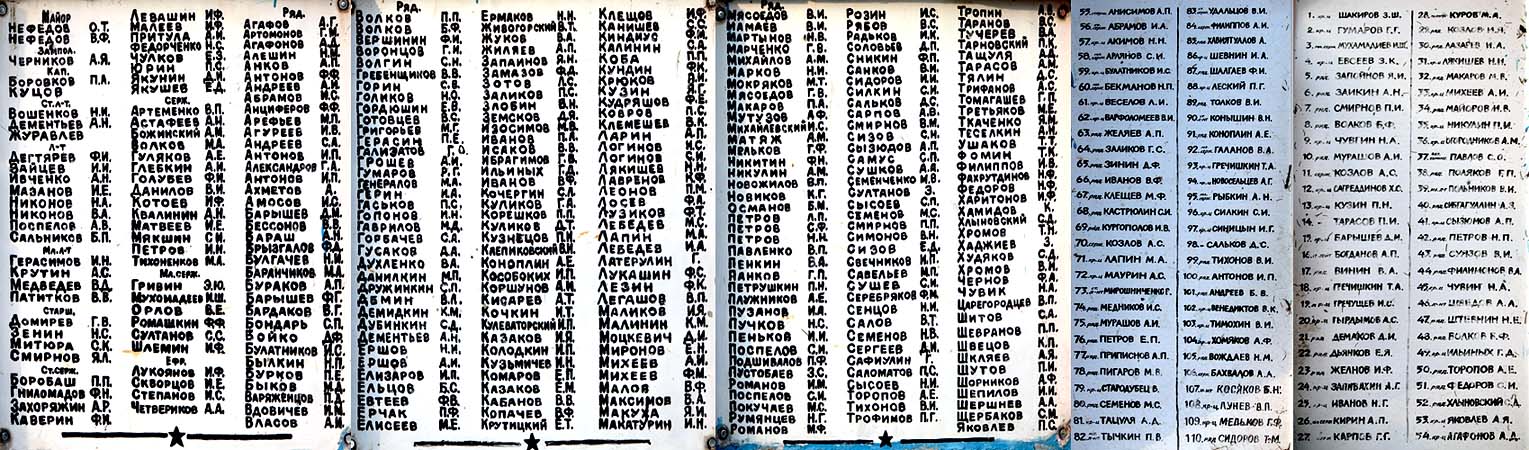 Майор
НЕФЕДОВ О.Т.
НЕФЕДОВ В.Ф.
Зам.пол.
ЧЕРНИКОВ А.Я.
Кап.
БОРОВКОВ П.А.
КУЦОВ
Ст.л-т.
ВОШЕНКОВ Н.И.
ДЕМЕНТЬЕВ А.Н.
ЖУРАВЛЕВ
Л-т
ДЕГТЯРЕВ Ф.И.
ЗАЙЦЕВ И.Я.
ИВЧЕНКО А.Н.
МАЗАНОВ И.Е.
НИКОНОВ Н.А.
НИКОНОВ В.А.
ПОСПЕЛОВ А.В.
САЛЬНИКОВ Б.П.
Мл.л-т
ГЕРАСИМОВ И.Н.
КРУТИН А.С.
МЕДВЕДЕВ В.Д.
ПАТИТКОВ В.В.
Старш.
ДОМИРЕВ Г.В.
ЗЕНИН Н.С.
МИТЮРА С.К.
СМИРНОВ Я.Л.
Ст.серж.
БОРОБАШ П.П.
ГНИЛОМАДОВ Ф.Н.
ЗАХОРЯЖИН А.Р.
КАВЕРИН Ф.И.
ЛЕВАШИН И.Ф.
МАЛЕЕВ И.Ф.
ПРИТУЛА А.И.
ФЕДОРЧЕНКО Н.С.
ЧУЛКОВ Е.З.
ЮРИН П.С.
ЯКУНИН Д.И.
ЯКУШЕВ Е.Д.
Серж.
АРТЕМЕНКО В.П.
АСТАФЕЕВ А.Н.
БОЖИНСКИЙ А.М.
ВОЛКОВ М.А.
ГУЛЯКОВ А.Е.
ГЛЕБКИН А.И.
ГОЛУБЕВ Ф.И.
ДАНИЛОВ В.И.
КОТОЕВ И.Ф.
КВАЛИНИН А.Н.
МАТВЕЕВ И.Е.
МЯКШИН С.И.
ПЕТРОВ И.И.
ТИХОНЕНКОВ М.А.
Мл.серж.
ГРИВИН Э.Ю.
МУХОМАДЕЕВ И.Ш.
ОРЛОВ В.Е.
РОМАШКИН Ф.Ф.
СУЛТАНОВ С.С.
ШЛЕМИН И.Ф.
Ефр.
ЛУКОЯНОВ И.Ф.
СКВОРЦОВ И.Е.
СТЕПАНОВ И.С.
ЧЕТВЕРИКОВ А.А.
Ряд.
АГАФОВ А.Г.
АРТОМОНОВ Г.И.
АГАФОНОВ А.Д.
АЛЕШИН И.И.
АНКОВ А.П.
АНТОНОВ Ф.Ф.
АНДРЕЕВ А.И.
АБРАМОВ И.С.
АНЦИФЕРОВ Ф.Ф.
АРЕФЬЕВ М.П.
АГУРЕЕВ И.В.
АНДРЕЕВ С.А.
АНТОНОВ И.П.
АЛЕКСАНДРОВ Г.А.
АНТОНОВ И.П.
АХМЕТОВ А.
АМОСОВ И.С.
БАРЫШЕВ Д.М.
БЕССОНОВ В.В.
БАРАШ Д.Н.
БРЫЗГАЛОВ Ф.Д.
БУЛГАЧЕВ Н.И.
БАРАНЧИКОВ М.А.
БУРАКОВ А.П.
БАРЫШЕВ Ф.Г.
БАРДАКОВ В.Г.
БОНДАРЬ С.П.
БОЙКО Д.Ф.
БУЛАТНИКОВ И.С.
БЫЛКИН П.Н.
БУРКОВ П.Е.
БЫКОВ М.Д.
ВАРЯЖЕНЦОВ П.Д.
ВДОВИЧЕВ И.М.
ВЛАСОВ А.И.
Ряд.
ВОЛКОВ П.П.
ВОЛКОВ Б.Ф.
ВЕРШИНИН Ф.И.
ВОРОНЦОВ Г.И.
ВОЛГИН С.Н.
ГРЕБЕНЩИКОВ В.В.
ГОРИН С.В.
ГОЛИКОВ Н.О.
ГОРДЮШИН Е.В.
ГОТОВЦЕВ В.С.
ГРИГОРЬЕВ М.Г.
ГЕРАСИН П.Е.
ГАЛИЗАТОВ Г.О.
ГРОШЕВ Д.И.
ГУМАРОВ Г.Г.
ГЕНЕРАЛОВ М.А.
ГЕРИН И.А.
ГАСЬКОВ П.С.
ГОПОНОВ И.Н.
ГАВРИЛОВ М.Д.
ГОРБАЧЕВ С.А.
ГУСАКОВ Д.А.
ДУХЛЕНКО В.А.
ДАНИЛКИН М.П.
ДРУЖИНКИН С.П.
ДЕМИН В.Л.
ДЕМИДКИН Г.М.
ДУБИНКИН С.Д.
ДЕМЕНТЬЕВ А.Н.
ЕРШОВ Н.И.
ЕРЩОВ А.И.
ЕЛИЗАРОВ М.П.
ЕЛЬЦОВ Б.С.
ЕВТЕЕВ Ф.В.
ЕРЧАК П.Ф.
ЕЛИСЕЕВ М.Е.
ЕРМАКОВ Н.Н.
ЖИВОГОРСКИЙ В.Т.
ЖУКОВ В.А.
ЖИЛЯЕВ А.П.
ЗАПАИНОВ Я.Н.
ЗАМАЗОВ Ф.Д.
ЗОТОВ Л.С.
ЗАЛИКОВ Г.С.
ЗЛОБИН В.Н.
ЗЕМСКОВ Д.Я.
ИЗОСИМОВ М.В.
ИВАНОВ П.А.
ИСАКОВ В.В.
ИБРАГИМОВ Г.В.
ИЛЬИНЫХ Г.Д.
ИВАНОВ В.Ф.
КОЧЕРГИН С.Л.
КУЛИКОВ Г.А.
КОРЕШКОВ П.П.
КУЛИКОВ Д.Т.
КУЗНЕЦОВ П.И.
КАЕПИКОВСКИЙ В.Н.
КОНОПЛИН А.Е.
КОСОБОКИХ И.П.
КОРШУНОВ А.И.
КИСАРЕВ А.Т.
КОЧКИН И.Т.
КУЛЕВАТОРСКИЙ И.П.
КАЗАКОВ И.Я.
КОЛОДКИН И.П.
КУЗЬМИЧЕВ И.Н.
КОМАРОВ Е.П.
КАЗАКОВ Е.М.
КАБАНОВ В.В.
КОПАЧЕВ В.Ф.
КРУТИЦКИЙ Е.Т.
КЛЕЩОВ И.Ф.
КАНИЩЕВ С.Е.
КИНДИУС Ф.М.
КАЛИНИН С.А.
КОБА П.П.
КУНДИН И.К.
КРЮКОВ А.И.
КУЗИН Я.Г.
КУДРЯШОВ Ф.Е.
КОВРОВ П.С.
КЛЕМЕШЕВ В.К.
ЛАРИН А.П.
ЛОГИНОВ И.С.
ЛОГИНОВ И.С.
ЛЯКИШЕВ Н.Н.
ЛАВРЕНОВ И.Ф.
ЛЕОНОВ П.М.
ЛОСЕВ Ф.А.
ЛУЗИКОВ Ф.Т.
ЛЕБЕДЕВ М.С.
ЛАПИН М.А.
ЛЕБЕДЕВ И.А.
ЛАТЕРУЛИН Г.
ЛУКАШИН Ф.С.
ЛЕЗИН Ф.К.
ЛЕГАШОВ В.П.
МАЛИКОВ И.Я.
МАЛИНИН К.М.
МОЦКЕВИЧ Д.И.
МИРОНОВ Е.Н.
МИХЕЕВ А.И.
МИХЕЕВ Ф.М.
МАЛОВ В.Ф.
МАКСИМОВ В.А.
МАКУХА Я.И.
МАКАТУРИН И.Н.
Ряд.
МЯСОЕДОВ В.И.
МАМАЕВ В.И.
МАРТЫНОВ Н.В.
МАРЧЕНКО Г.В.
МИХАЙЛОВ А.М.
МАРКОВ Н.И.
МОКРЯКОВ М.Т.
МЯСОЕДОВ Г.В.
МАКАРОВ П.А.
МУТУЗОВ А.Ф.
МИХАЙЛЕВСКИЙ И.С.
МАТЯЖ А.М.
МЕЛЬКОВ Г.Ф.
НИКИТИН Ф.Н.
НИКУЛИН А.М.
НОВОЖИЛОВ В.П.
НОВИКОВ К.Г.
ОСМАНОВ Б.М.
ПЕТРОВ А.П.
ПЕТРОВ С.Ф.
ПЕТРОВ Н.Н.
ПАВЛЕНКО В.П.
ПЕНКИН В.А.
ПАНКОВ Г.П.
ПЕТРУШКИН П.Н.
ПЛУЖНИКОВ А.Е.
ПУЗАНОВ И.А.
ПУЧКОВ Н.С.
ПЕНЬКОВ И.И.
ПОСПЕЛОВ С.И.
ПОДШИВАЛОВ П.Ф.
ПУСТОБАЕВ З.С.
РОМАНОВ И.М.
ПОСПЕЛОВ С.И.
ПОКУЧАЕВ М.С.
РУМЯНЦЕВ Н.Г.
РОМАНОВ М.Ф.
РОЗИН И.С.
РЯБОВ В.С.
РАДЬКОВ И.К.
СОЛОВЬЕВ Д.П.
СНИКИН Ф.П.
САНКОВ В.И.
СИДОРОВ И.И.
СИЛКИН С.И.
САЛЬКОВ Д.С.
САРПОВ А.В.
СМИРНОВ В.М.
СИЗОВ С.Н.
СЫЗЮДОВ А.П.
САМУС С.П.
СУШКОВ А.А.
СЕМЕНЧЕНКО И.В.
СУЛТАНОВ З.
СЫСОЕВ С.П.
СЕМЕНОВ М.С.
СМИРНОВ П.П.
СИМОНОВ В.Н.
СИЗОВ Е.Д.
СВЕЧНИКОВ И.П.
САВЕЛЬЕВ М.П.
СУШЕВ С.И.
СЕРЕБРЯКОВ Ф.М.
СЕНЦОВ Н.И.
САЛОВ В.Т.
СЕМЕНОВ К.В.
СЕРГЕЕВ Д.И.
САФИУЛИН Г.
САЛОМАТОВ П.С.
СЫСОЕВ Н.И.
ТОРОПОВ А.Е.
ТИХОНОВ В.И.
ТРОФИМОВ П.Г.
ТРОПИН А.В.
ТАРАНОВ В.С.
ТУЧЕРЕВ В.А.
ТАРНОВСКИЙ П.К.
ТАЦУЛЯ А.Г.
ТАРАСОВ М.И.
ТЯЛИН Д.С.
ТРИФАНОВ А.С.
ТОМАГАШЕВ Г.П.
ТРЕТЬЯКОВ М.Е.
ТКАЧЕНКО Я.М.
ТЕСЕЛКИН А.И.
УШАКОВ И.П.
ФОМИН Т.К.
ФИЛИППОВ И.В.
ФАХРУТДИНОВ Н.Ф.
ФЕДОРОВ И.Ф.
ХАРИТОНОВ И.Ф.
ХАМИДОВ К.
ХЛЫНОВСКИЙ С.Д.
ХРОМОВ Т.Н.
ХАДЖИЕВ З.
ХУДЯКОВ С.Д.
ХРОМОВ В.И.
ЧЕРНОВ Н.А.
ЧУВИК Н.А.
ЦАРЕГОРОДЦЕВ В.П.
ШИТОВ С.А.
ШЕВРАНОВ П.П.
ШВЕЦОВ К.П.
ШКЛЯЕВ А.Я.
ШУТОВ П.И.
ШОРНИКОВ А.Ф.
ШЕПИЛОВ П.Е.
ШЕРШНЕВ А.А.
ЩЕРБАКОВ С.И.
ЯКОВЛЕВ П.С.
55. АНИСИМОВ А.П.
56. АБРАМОВ И.А.
57. АКИМОВ Н.Н.
58. АРЛЯНОВ С.И.
59. БУЛАТНИКОВ И.С.
60. БЕКМАНОВ Н.П.
61. ВЕСЕЛОВ Л.И.
62. ВАРФОЛОМЕЕВ В.И.
63. ЖЕЛЯЕВ А.П.
64. ЗАЛИКОВ Г.С.
65. ЗИНИН Д.Ф.
66. ИВАНОВ В.Ф.
67. КЛЕЩЕВ И.Ф.
68. КАСТРЮЛИН С.И.
69. КУРГОПОЛОВ И.В.
70. КОЗЛОВ А.С.
71. ЛАПИН М.А.
72. МАУРИН А.С.
73. МИРОШНИЧЕНКО Г.
74. МЕДНИКОВ И.С.
75. МУРАШОВ А.И.
76. ПЕТРОВ Е.П.
77. ПРИПИСНОВ А.П.
78. ПИГАРОВ М.В.
79. СТАРОДУБЕЦ В.
80. СЕМЕНОВ М.С.
81. ТАЦУЛЯ А.Д.
82. ТЫЧКИН П.В.
83. УДАЛЬЦОВ В.И.
84. ФИЛИППОВ А.И.
85. ХАВИЯТУЛЛОВ А.
86. ШЕВНИН И.А.
87. ШАЛГАЕВ Ф.И.
88. ЛЕСКИЙ П.Г.
89. ТОЛКОВ В.И.
90. КОНЫШИН В.Н.
91. КОНОПЛИН А.Е.
92. ГАЛАНОВ В.А.
93. ГРЕЧИШКИН Т.А.
94. НОВОСЕЛЬЦЕВ А.Г.
95. РЫБКИН А.Н.
96. СИЛКИН С.И.
97. СИНИЦЫН И.Г.
98. САЛЬКОВ Д.С.
99. ТИХОНОВ В.И.
100. АНТОНОВ И.П.
101. АНДРЕЕВ Б.В.
102. ВЕНЕДИКТОВ В.К.
103. ТИМОХИН В.И.
104. ХОМЯКОВ А.Ф.
105. ВОЖДАЕВ Н.М.
106. БАХВАЛОВ А.А.
107. КОСЯКОВ Б.Н.
108. ЛУНЕВ В.П.
109. МЕЛЬКОВ Г.Ф.
110. СИДОРОВ Т.М.
1. ШАКИРОВ З.Ш.
2. ГУМАРОВ Г.Г.
3. МУХАМАДИЕВ И.Ш.
4. ЕВСЕЕВ З.К.
5. ЗАПОЙНОВ Я.И.
6. ЗАИКИН А.Н.
7. СМИРНОВ П.И.
8. ВОЛКОВ Б.Ф.
9. ЧУВГИН Н.А.
10. МУРАШОВ А.И.
11. КОЗЛОВ А.С.
12. САГРЕДДИНОВ Х.С.
13. КУЗИН П.Н.
14. ТАРАСОВ П.И.
15. БАРЫШЕВ Д.И.
16. БОГДАНОВ А.П.
17. ВИНИН В.А.
18. ГРЕЧИШКИН Т.А.
19. ГРЕЧУЩЕВ И.С.
20. ГЫРДЫМОВ А.С.
21. ДЕМАКОВ Д.И.
22. ДЬЯЧКОВ Е.Я.
23. ЖЕЛНОВ И.Ф.
24. ЗАПИВАХИН А.Г.
25. ИВАНОВ Н.Г.
26. КИРГИН А.П.
27. КАРПОВ Г.Г.
28. КУРОВ М.А.
29. КОЗЛОВ Н.Я.
30. ЛАЗАРЕВ И.А.
31. ЛЯКИШЕВ Н.Н.
32. МАКАРОВ М.В.
33. МИХЕЕВ А.И.
34. МАЙОРОВ Н.В.
35. НИКУЛИН П.И.
36. ОГОРОДНИКОВ А.М.
37. ПАВЛОВ С.О.
38. ПОЛЯКОВ Г.П.
39. ПОЛЬНИКОВ В.И.
40. СИБГАГУЛЛИН А.З.
41. СЫЗЮМОВ А.П.
42. ПЕТРОВ Н.П.
43. СУНЗОВ В.И.
44. ФИЛИМОНОВ В.А.
45. ЧУВИН Н.А.
46. ШВЕДОВ А.А.
47. ШТЕВНИН Н.Е.
48. ВОЛКОВ Б.Ф.
49. ИЛЬИНЫХ Г.Д.
50. ТОРОПОВ А.Е.
51. ФЕДОРОВ С.И.
52. ХЛЫНОВСКИЙ С.Д.
53. ЯКОВЛЕВ А.Я.
54. АГАФОНОВ А.Д.